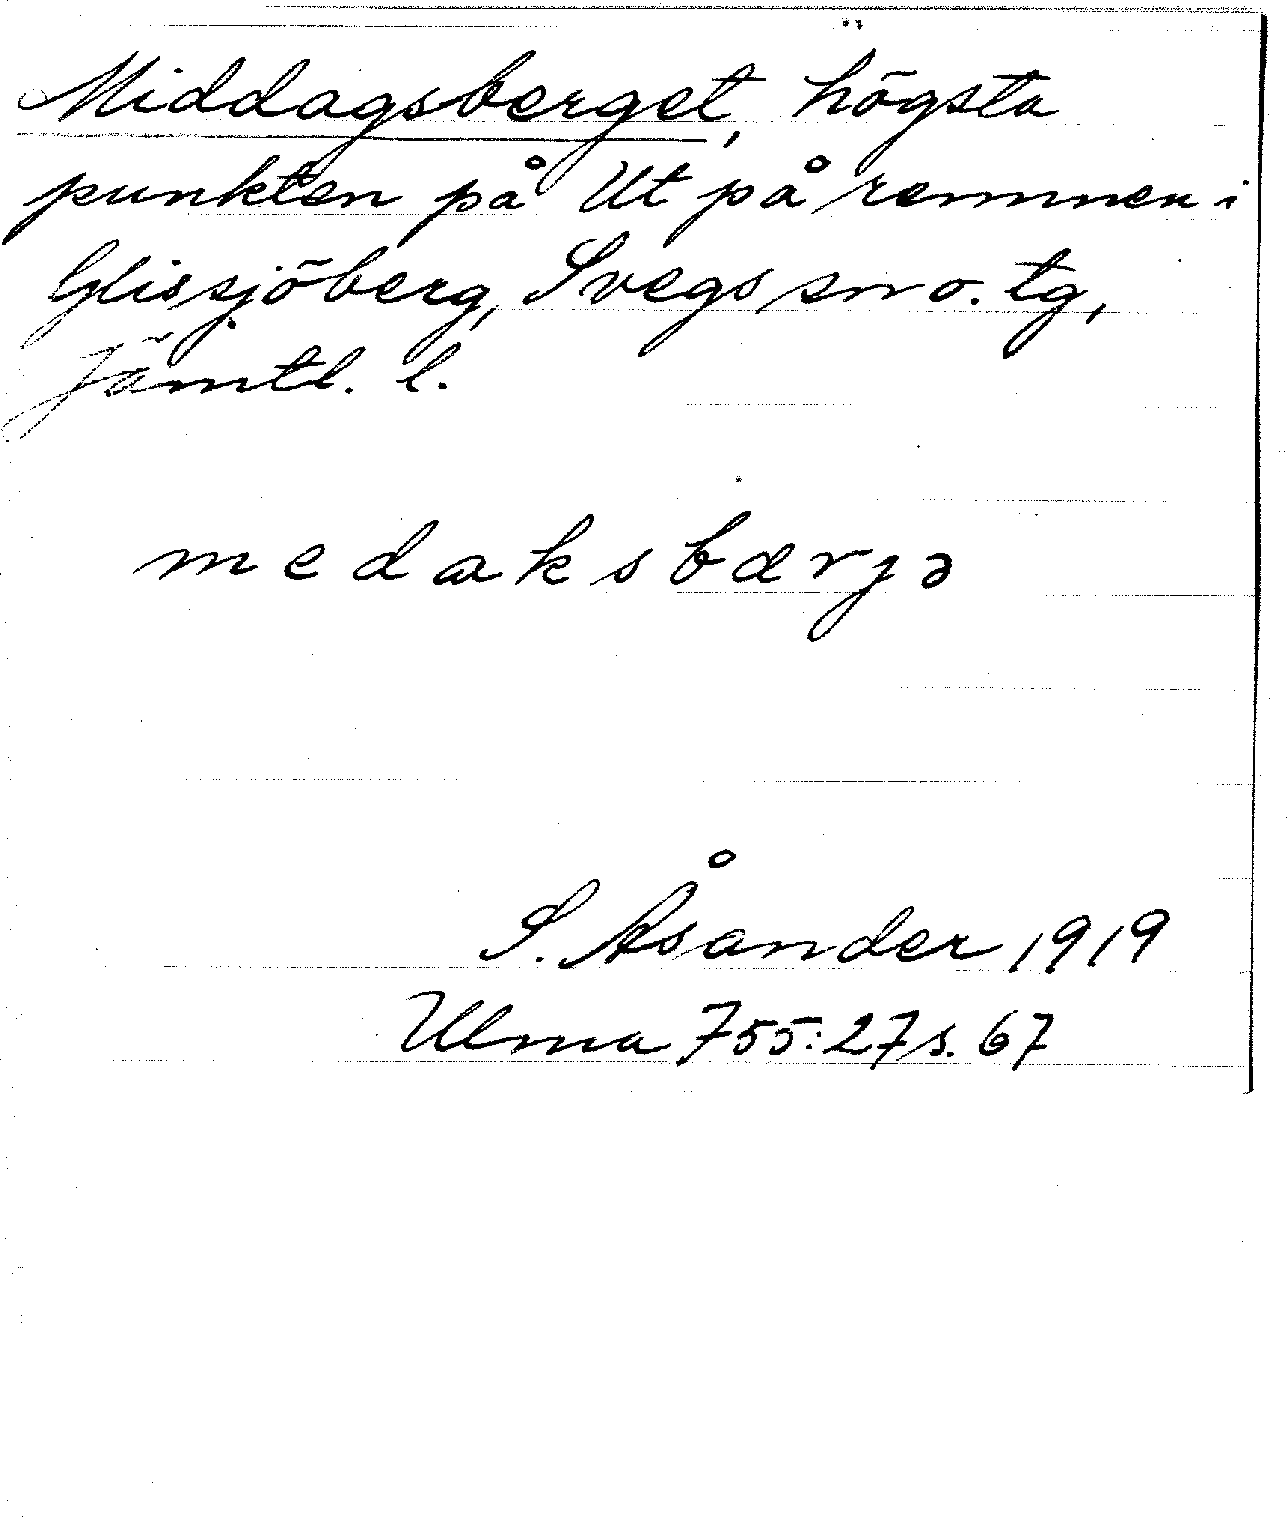 Middagsberget, högsta
punkten på Ut på remmen i
Glissjöberg, Svegs sn o. tg,
Jämtl. l.
medaksbærjə
S. Åsander 1919
Ulma 755:27 s. 67